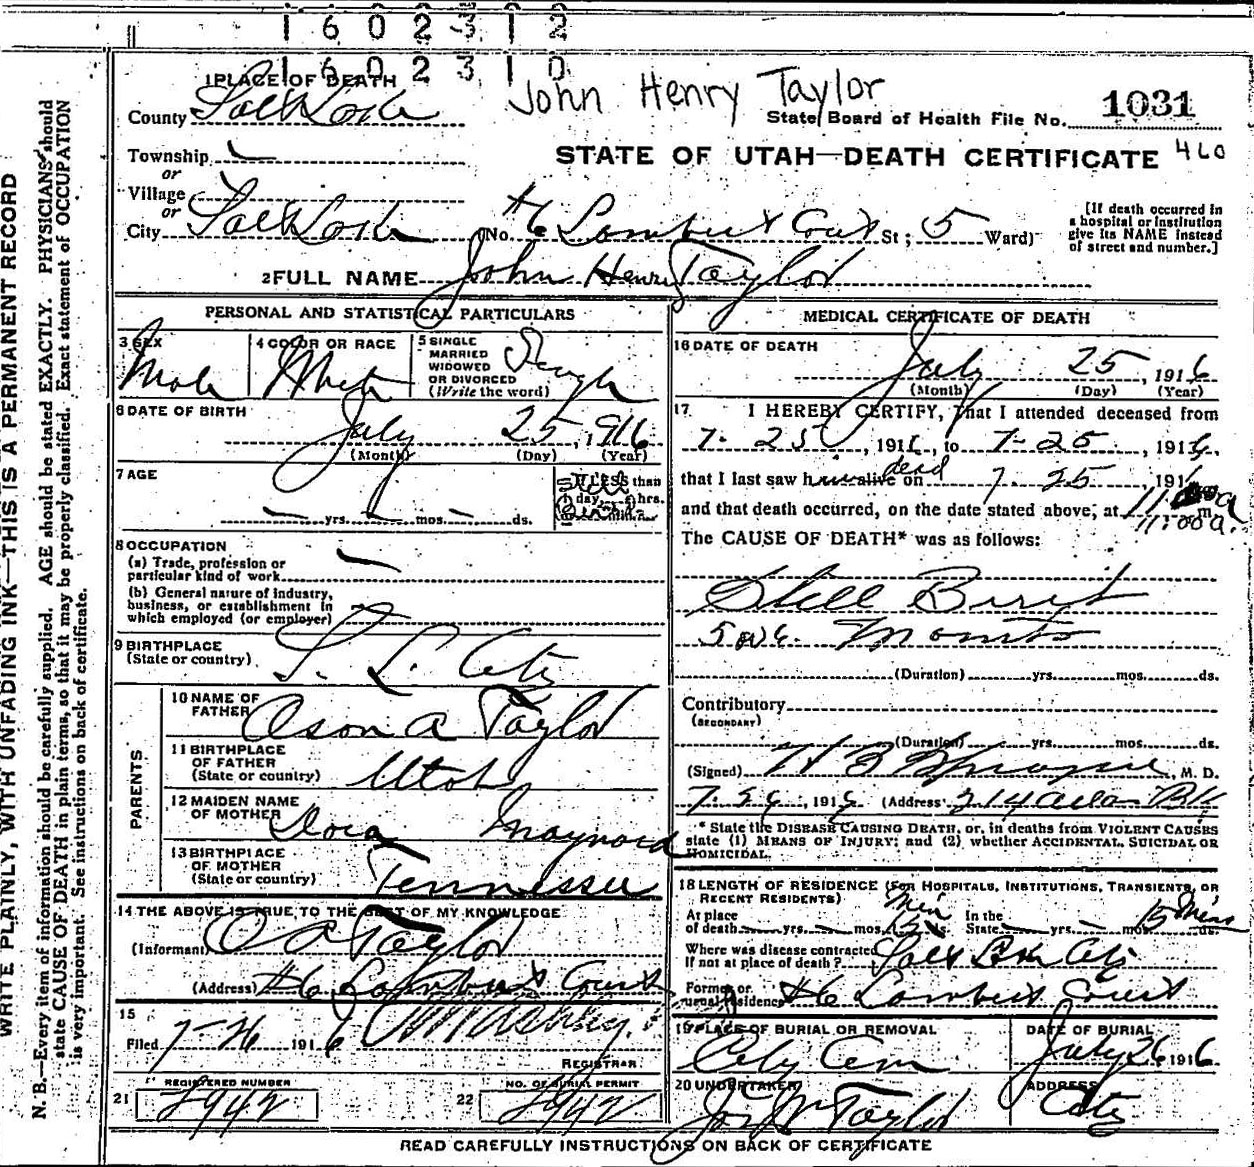 1602312
1602310
John Henry Taylor
State Board of Health File No. 1031
STATE OF UTAH—DEATH CERTIFICATE 460
1 PLACE OF DEATH
County Salt Lake
Township
or
Village
or
City Salt Lake (No. #6 Lambert Court St; 5 Ward)
[If death occurred in
a hospital or institution
give its NAME instead
of street and number.]
2 FULL NAME John Henry Taylor
PERSONAL AND STATISTICAL PARTICULARS
3 SEX
Male
4 COLOR OR RACE
White
5 SINGLE
MARRIED
WIDOWED
OR DIVORCED
(Write the word)
Single
6 DATE OF BIRTH
July 25, 1916
(Month) (Day) (Year)
7 AGE
yrs. mos. ds.
If LESS than
1 day, hrs.
Still
8 OCCUPATION
(a) Trade, profession or
particular kind of work
(b) General nature of industry,
business, or establishment in
which employed (or employer)
9 BIRTHPLACE
(State or country)
S. L. City
PARENTS
10 NAME OF
FATHER Oson A Taylor
11 BIRTHPLACE
OF FATHER
(State or country) Utah
12 MAIDEN NAME
OF MOTHER Dora Maynard
13 BIRTHPLACE
OF MOTHER
(State or country) Tennessee
14 THE ABOVE IS TRUE TO THE BEST OF MY KNOWLEDGE
(Informant) O A Taylor
(Address) #6 Lambert Court
15
Filed 7-26 1916
REGISTRAR
REGISTERED NUMBER
21
NO. OF BURIAL PERMIT
22
MEDICAL CERTIFICATE OF DEATH
16 DATE OF DEATH
July 25, 1916
(Month) (Day) (Year)
17 I HEREBY CERTIFY, That I attended deceased from
7-25, 1916, to 7-25, 1916,
that I last saw him alive dead on 7-25, 191
and that death occurred, on the date stated above, at 11 a m.
11:00 a.
The CAUSE OF DEATH* was as follows:
Still Birth
(Duration) yrs. mos. ds.
Contributory
(SECONDARY)
(Duration) yrs. mos. ds.
(Signed) H B Sprague, M. D.
7-26, 1916 (Address) 214
* State the DISEASE CAUSING DEATH, or, in deaths from VIOLENT CAUSES
state (1) MEANS OF INJURY; and (2) whether ACCIDENTAL, SUICIDAL OR
HOMICIDAL.
18 LENGTH OF RESIDENCE (FOR HOSPITALS, INSTITUTIONS, TRANSIENTS, OR
RECENT RESIDENTS)
At place
of death yrs. mos. 15 Min In the
State yrs. 15 Mins
Where was disease contracted
If not at place of death? Salt Lake City
Former or
usual residence #6 Lambert Court
19 PLACE OF BURIAL OR REMOVAL
City Cem
DATE OF BURIAL
July 26 1916
20 UNDERTAKER
Jos Wm Taylor
ADDRESS
City
READ CAREFULLY INSTRUCTIONS ON BACK OF CERTIFICATE
WRITE PLAINLY, WITH UNFADING INK—THIS IS A PERMANENT RECORD
N. B.—Every item of information should be carefully supplied. AGE should be stated EXACTLY. PHYSICIANS should
state CAUSE OF DEATH in plain terms, so that it may be properly classified. Exact statement of OCCUPATION
is very important. See instructions on back of certificate.